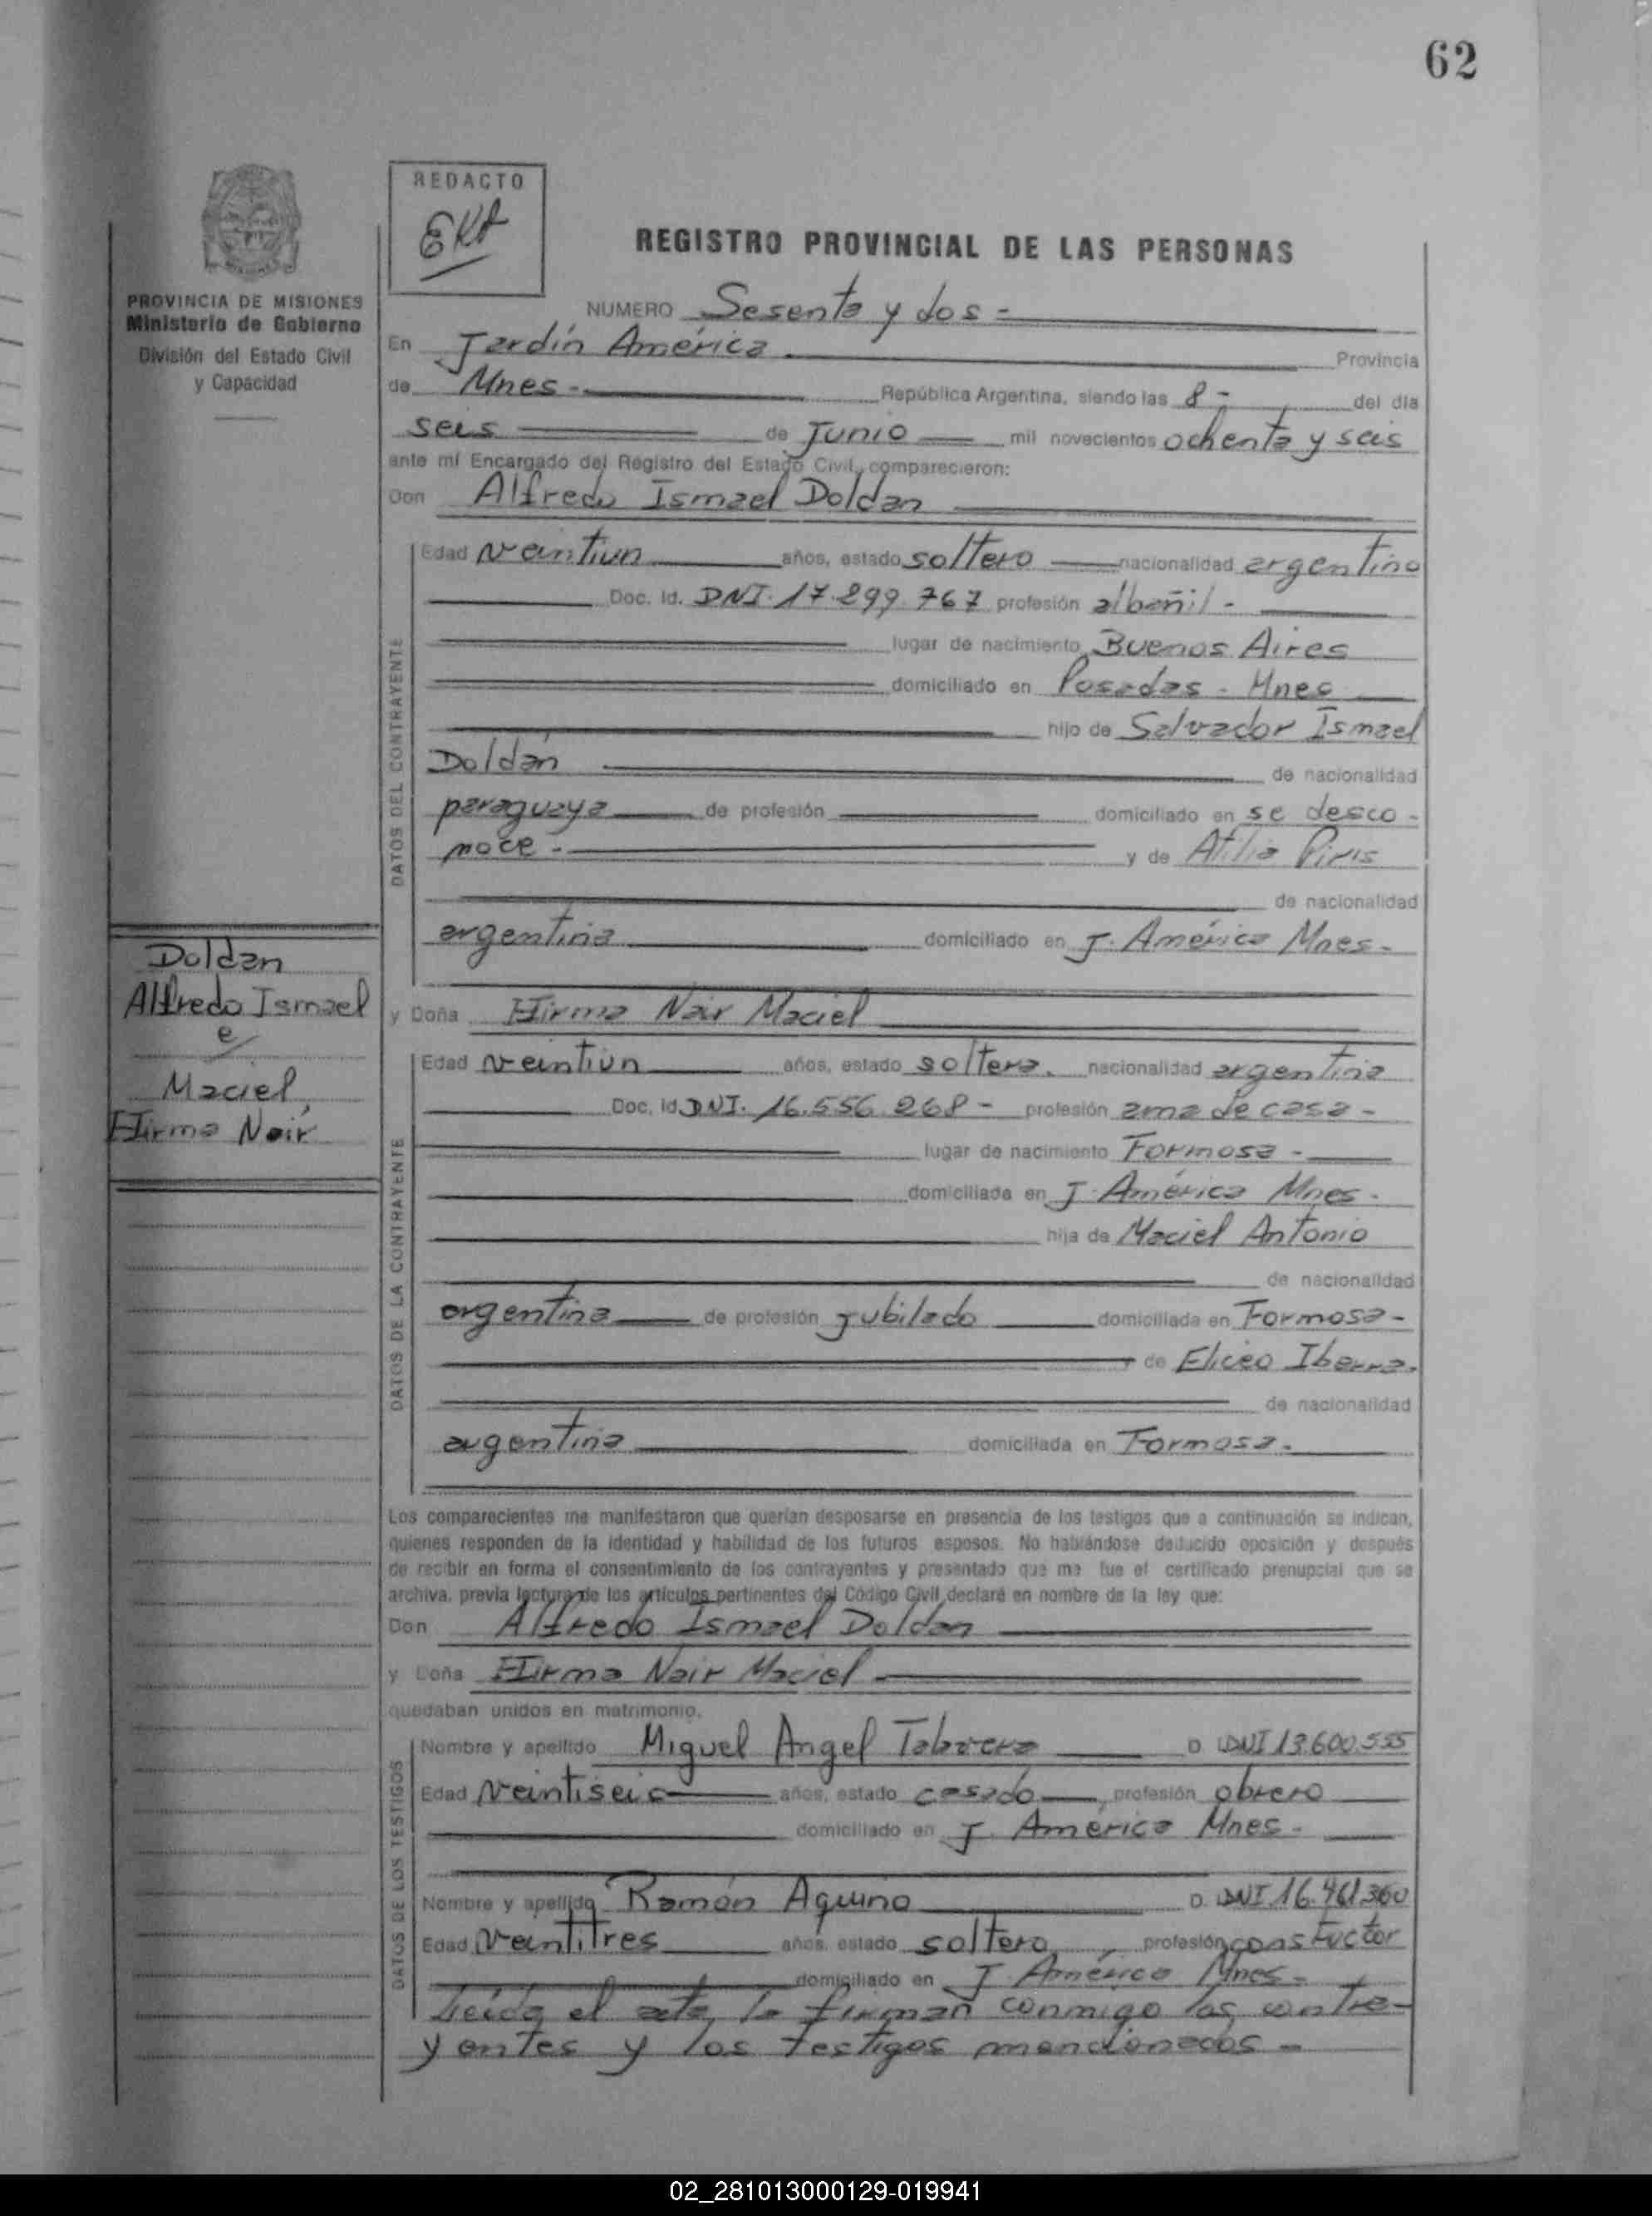 62
REDACTO
REGISTRO PROVINCIAL DE LAS PERSONAS
PROVINCIA DE MISIONES
Ministerio de Gobierno
División del Estado Civil
y Capacidad
NUMERO Sesenta y dos -
En Jardín América Provincia
de Mnes - República Argentina, siendo las 8 - del día
seis de Junio mil novecientos ochenta y seis
ante mí Encargado del Registro del Estado Civil, comparecieron:
Don Alfredo Ismael Doldan
DATOS DEL CONTRAYENTE
Edad veintiun años, estado soltero nacionalidad argentino
Doc. Id. DNI. 17.299.767 profesión albañil -
lugar de nacimiento Buenos Aires
domiciliado en Posadas - Mnes
hijo de Salvador Ismael
Doldán de nacionalidad
paraguaya de profesión domiciliado en se desco-
noce - y de Atilia Piris
de nacionalidad
argentina domiciliado en J. América Mnes -
Doldan
Alfredo Ismael
e
Maciel
Hirma Nair
y Doña Hirma Nair Maciel
DATOS DE LA CONTRAYENTE
Edad veintiun años, estado soltera. nacionalidad argentina
Doc. Id. DNI. 16.556.268 - profesión ama de casa -
lugar de nacimiento Formosa -
domiciliada en J. América Mnes.
hija de Maciel Antonio
de nacionalidad
argentina de profesión jubilado domiciliada en Formosa -
de Eliceo Ibarra.
de nacionalidad
argentina domiciliada en Formosa.
Los comparecientes me manifestaron que querían desposarse en presencia de los testigos que a continuación se indican,
quienes responden de la identidad y habilidad de los futuros esposos. No habiéndose deducido oposición y después
de recibir en forma el consentimiento de los contrayentes y presentado que me fue el certificado prenupcial que se
archiva, previa lectura de los artículos pertinentes del Código Civil declaré en nombre de la ley que:
Don Alfredo Ismael Doldan
y Doña Hirma Nair Maciel
quedaban unidos en matrimonio.
DATOS DE LOS TESTIGOS
Nombre y apellido Miguel Angel D. DNI 13.600.555
Edad Veintiseis años, estado casado, profesión obrero
domiciliado en J. America Mnes -
Nombre y apellido Ramón Aquino D. DNI 16.461.360
Edad Veintitres años, estado soltero, profesión constuctor
domiciliado en J. América Mnes -
Leida el acta, la firman conmigo los contra-
yentes y los testigos mencionados -
02_281013000129-019941